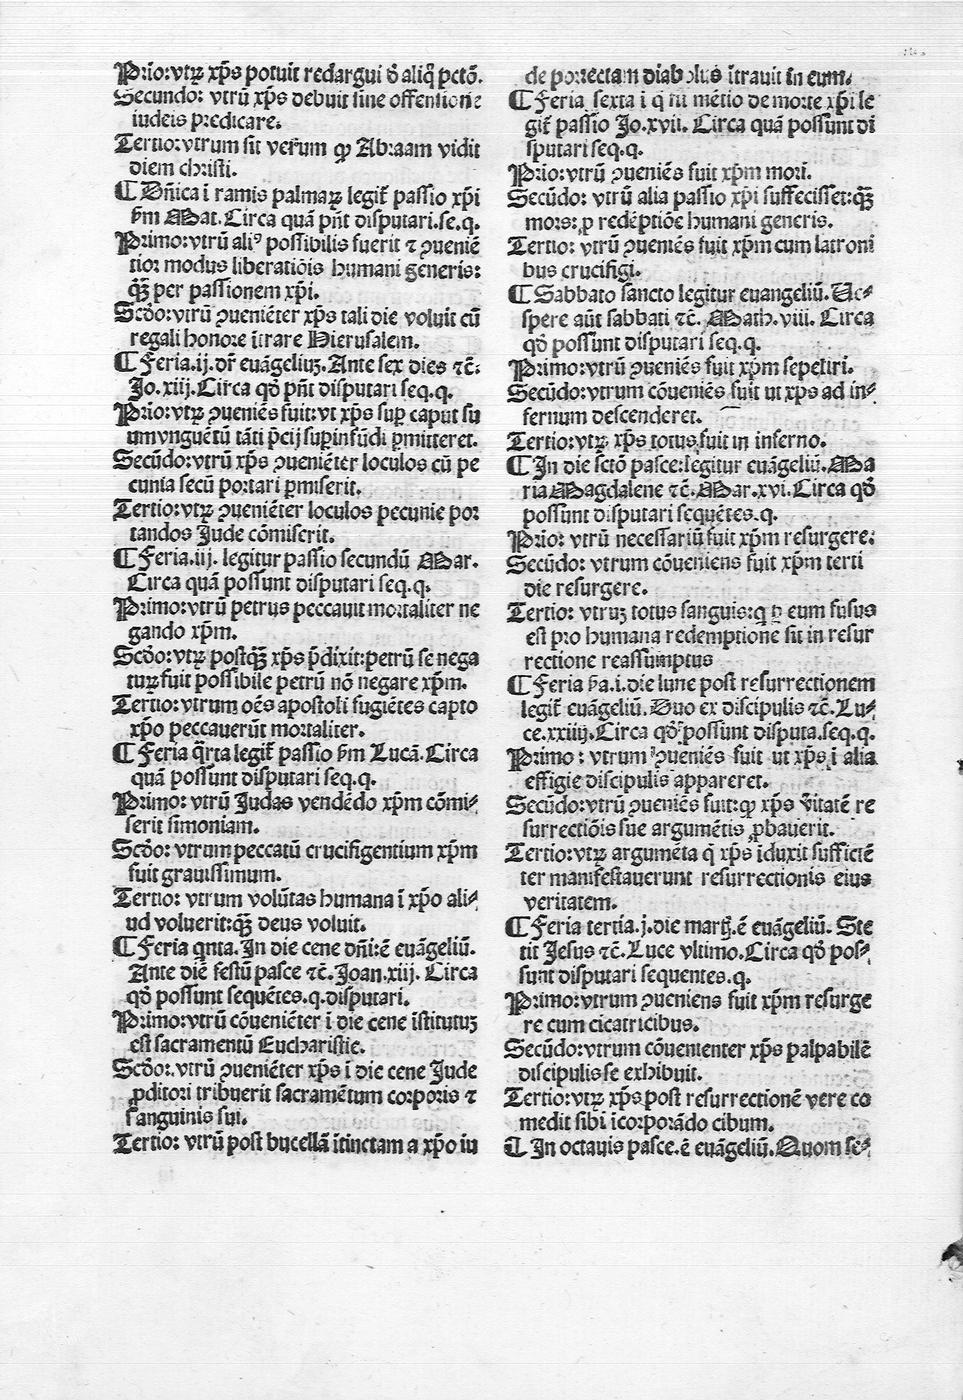 Prio:vtrꝝ xp̄s potuit redargui ꝺ̄ aliq̄ pctō.
Secundo: vtrū xp̄s debuit sine offensione
iudeis predicare.
Tertio:vtrum sit verum ꝙ Abraam vidit
diem christi.
¶ Dn̄ica i ramis palmaꝝ legit̄ passio xp̄i
ẜm Mat.Circa quā pn̄t disputari.se.q.
Primo:vtrū aliꝰ possibilis fuerit ⁊ ꝯueniē
tior modus liberatiōis humani generis:
qꝫ̄ per passionem xp̄i.
Scd̄o:vtrū ꝯueniēter xp̄s tali die voluit cū
regali honore ītrare Hierusalem.
¶ Feria.ij.dr̄ euāgeliuꝫ.Ante sex dies ⁊c̄.
Jo.xiij.Circa qd̄ pn̄t disputari seq.q.
Prio:vtrꝝ ꝯueniēs fuit:vt xp̄s suꝑ caput su
um vnguētū tāti p̄cij suꝑinfūdi ꝑmitteret.
Secūdo:vtrū xp̄s ꝯueniēter loculos cū pe
cunia secū portari ꝑmiserit.
Tertio:vtrꝝ ꝯueniēter loculos pecunie por
tandos Jude cōmiserit.
¶ Feria.iij. legitur passio secundū Mar.
Circa quā possunt disputari seq.q.
Primo:vtrū petrus peccauit mortaliter ne
gando xp̄m.
Scd̄o:vtrꝝ postqꝫ̄ xp̄s p̄dixit:petrū se nega
turꝝ fuit possibile petrū nō negare xp̄m.
Tertio:vtrum oēs apostoli fugiētes capto
xp̄o peccauerūt mortaliter.
¶ Feria q̄rta legit̄ passio ẜm Lucā.Circa
quā possunt disputari seq.q.
Primo: vtrū Judas vendēdo xp̄m cōmi⸗
serit simoniam.
Scd̄o: vtrum peccatū crucifigentium xp̄m
fuit grauissimum.
Tertio: vtrum volūtas humana ī xp̄o ali⸗
ud voluerit:qꝫ̄ deus voluit.
¶ Feria qnta.In die cene dn̄i:ē euāgeliū.
Ante diē festū pasce ⁊c̄.Joan.xiij. Circa
qd̄ possunt sequētes.q.disputari.
Primo:vtrū cōueniēter i die cene īstitutuꝫ
est sacramentū Eucharistie.
Scd̄o: vtrū ꝯueniēter xp̄s i die cene Jude
ꝓditori tribuerit sacramētum corporis ⁊
sanguinis sui.
Tertio: vtrū post bucellā ītinctam a xp̄o iu
de porrectam diabolus ītrauit in eum.
¶ Feria sexta i q fit mētio de morte xp̄i le
git̄ passio Jo.xvii. Circa quā possunt di
sputari seq.q.
Prio:vtrū ꝯueniēs fuit xp̄m mori.
Secūdo: vtrū alia passio xp̄i suffecisset:qꝫ̄
mors:ꝓ redēptiōe humani generis.
Tertio: vtrū ꝯueniēs fuit xp̄m cum latroni
bus crucifigi.
¶ Sabbato sancto legitur euangeliū. Ve⸗
spere aūt sabbati ⁊c̄. Math.viii. Circa
qd̄ possunt disputari seq.q.
Primo:vtrū ꝯueniēs fuit xp̄m sepeliri.
Secūdo:vtrum cōueniēs fuit ut xp̄s ad in⸗
fernum descenderet.
Tertio:vtrꝝ xp̄s totus fuit in inferno.
¶ In die sctō pasce:legitur euāgeliū.Ma
ria Magdalene ⁊c̄.Mar.xvi.Circa qd̄
possunt disputari sequētes.q.
Prio: vtrū necessariū fuit xp̄m resurgere.
Secūdo: vtrum cōueniens fuit xp̄m terti
die resurgere.
Tertio: vtruꝫ totus sanguis:q ꝑ eum fusus
est pro humana redemptione sit in resur
rectione reassumptus
¶ Feria ẜa.i.die lune post resurrectionem
legit̄ euāgeliū.Duo ex discipulis ⁊c̄.Lu⸗
ce.xxiiij.Circa qd̄ possunt disputa.seq.q.
Primo: vtrum ꝯueniēs fuit ut xp̄s i alia
effigie discipulis appareret.
Secūdo:vtrū ꝯueniēs fuit:ꝙ xp̄s v̄itatē re
surrectiōis sue argumētis ꝓbauerit.
Tertio:vtrꝝ argumēta q̄ xp̄s īduxit sufficiē
ter manifestauerunt resurrectionis eius
veritatem.
¶ Feria tertia.j.die martꝭ.ē euāgeliū. Ste
tit Jesus ⁊c̄.Luce vltimo.Circa qd̄ pos⸗
sunt disputari sequentes.q.
Primo:vtrum ꝯueniens fuit xp̄m resurge
re cum cicatricibus.
Secūdo:vtrum cōuenienter xp̄s palpabilē
discipulis se exhibuit.
Tertio:vtrꝝ xp̄s post resurrectionē vere co
medit sibi īcorporādo cibum.
¶ In octauis pasce.ē euāgeliū.Quom se⸗